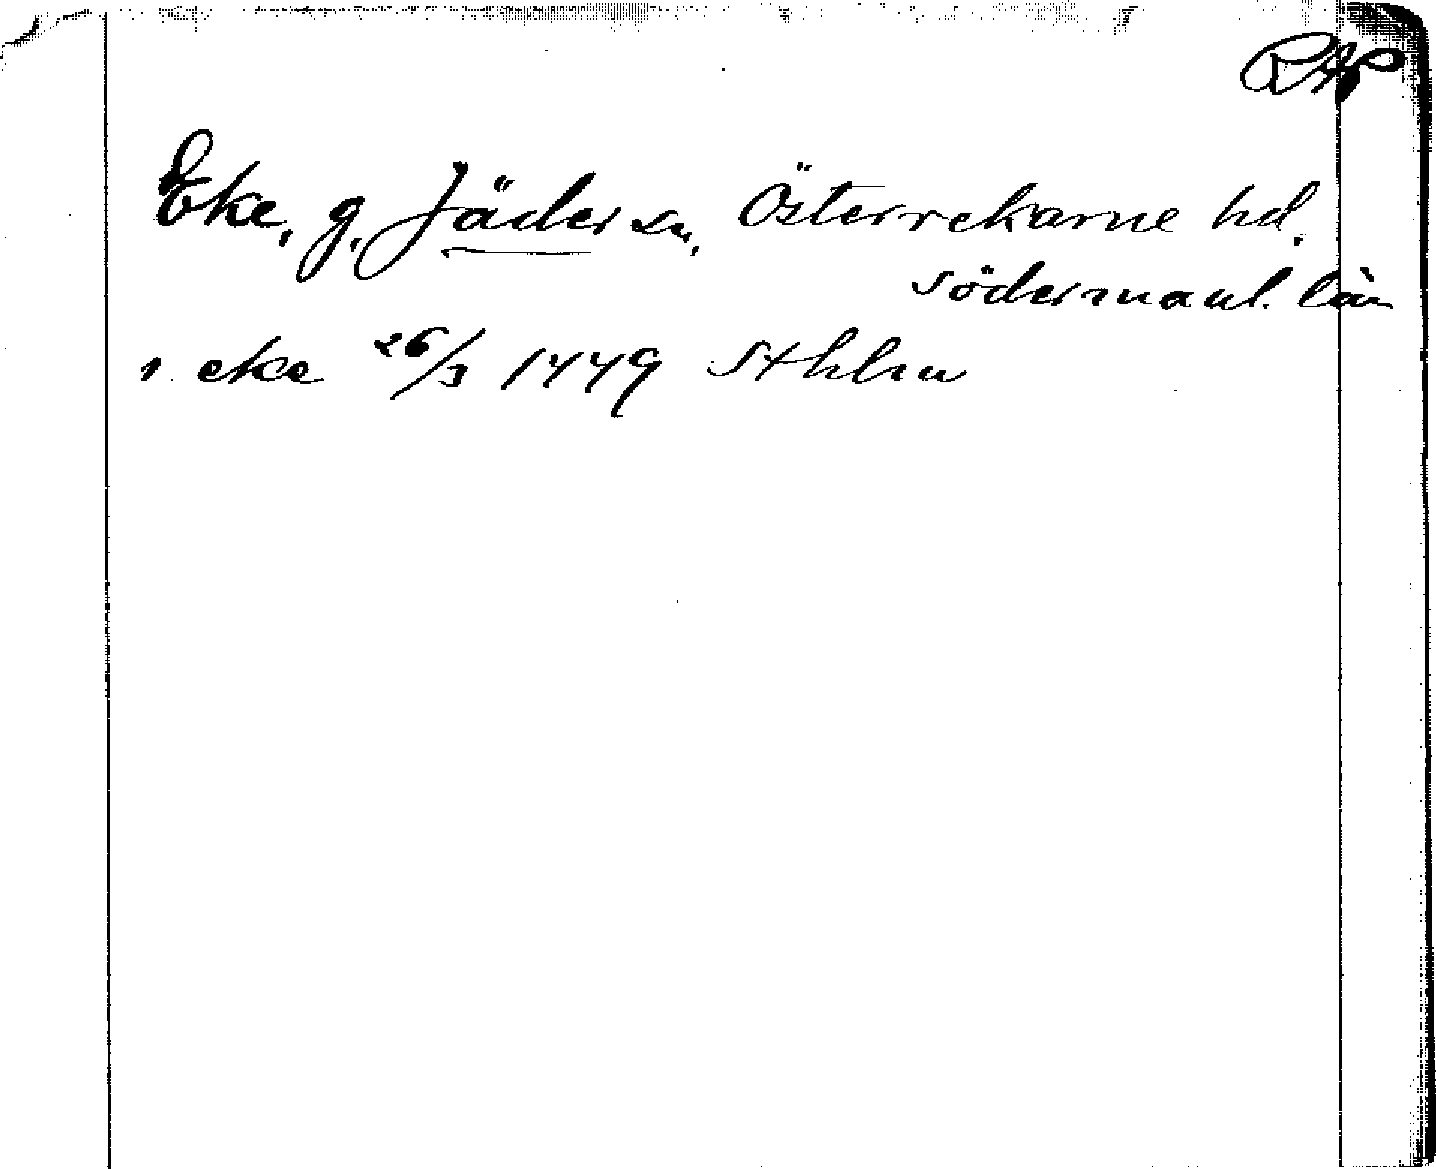 RAP
Eke, g. Jäder sn, Österrekarne hd.
Södermanl. län
1. eke 26/3 1449 Sthlm